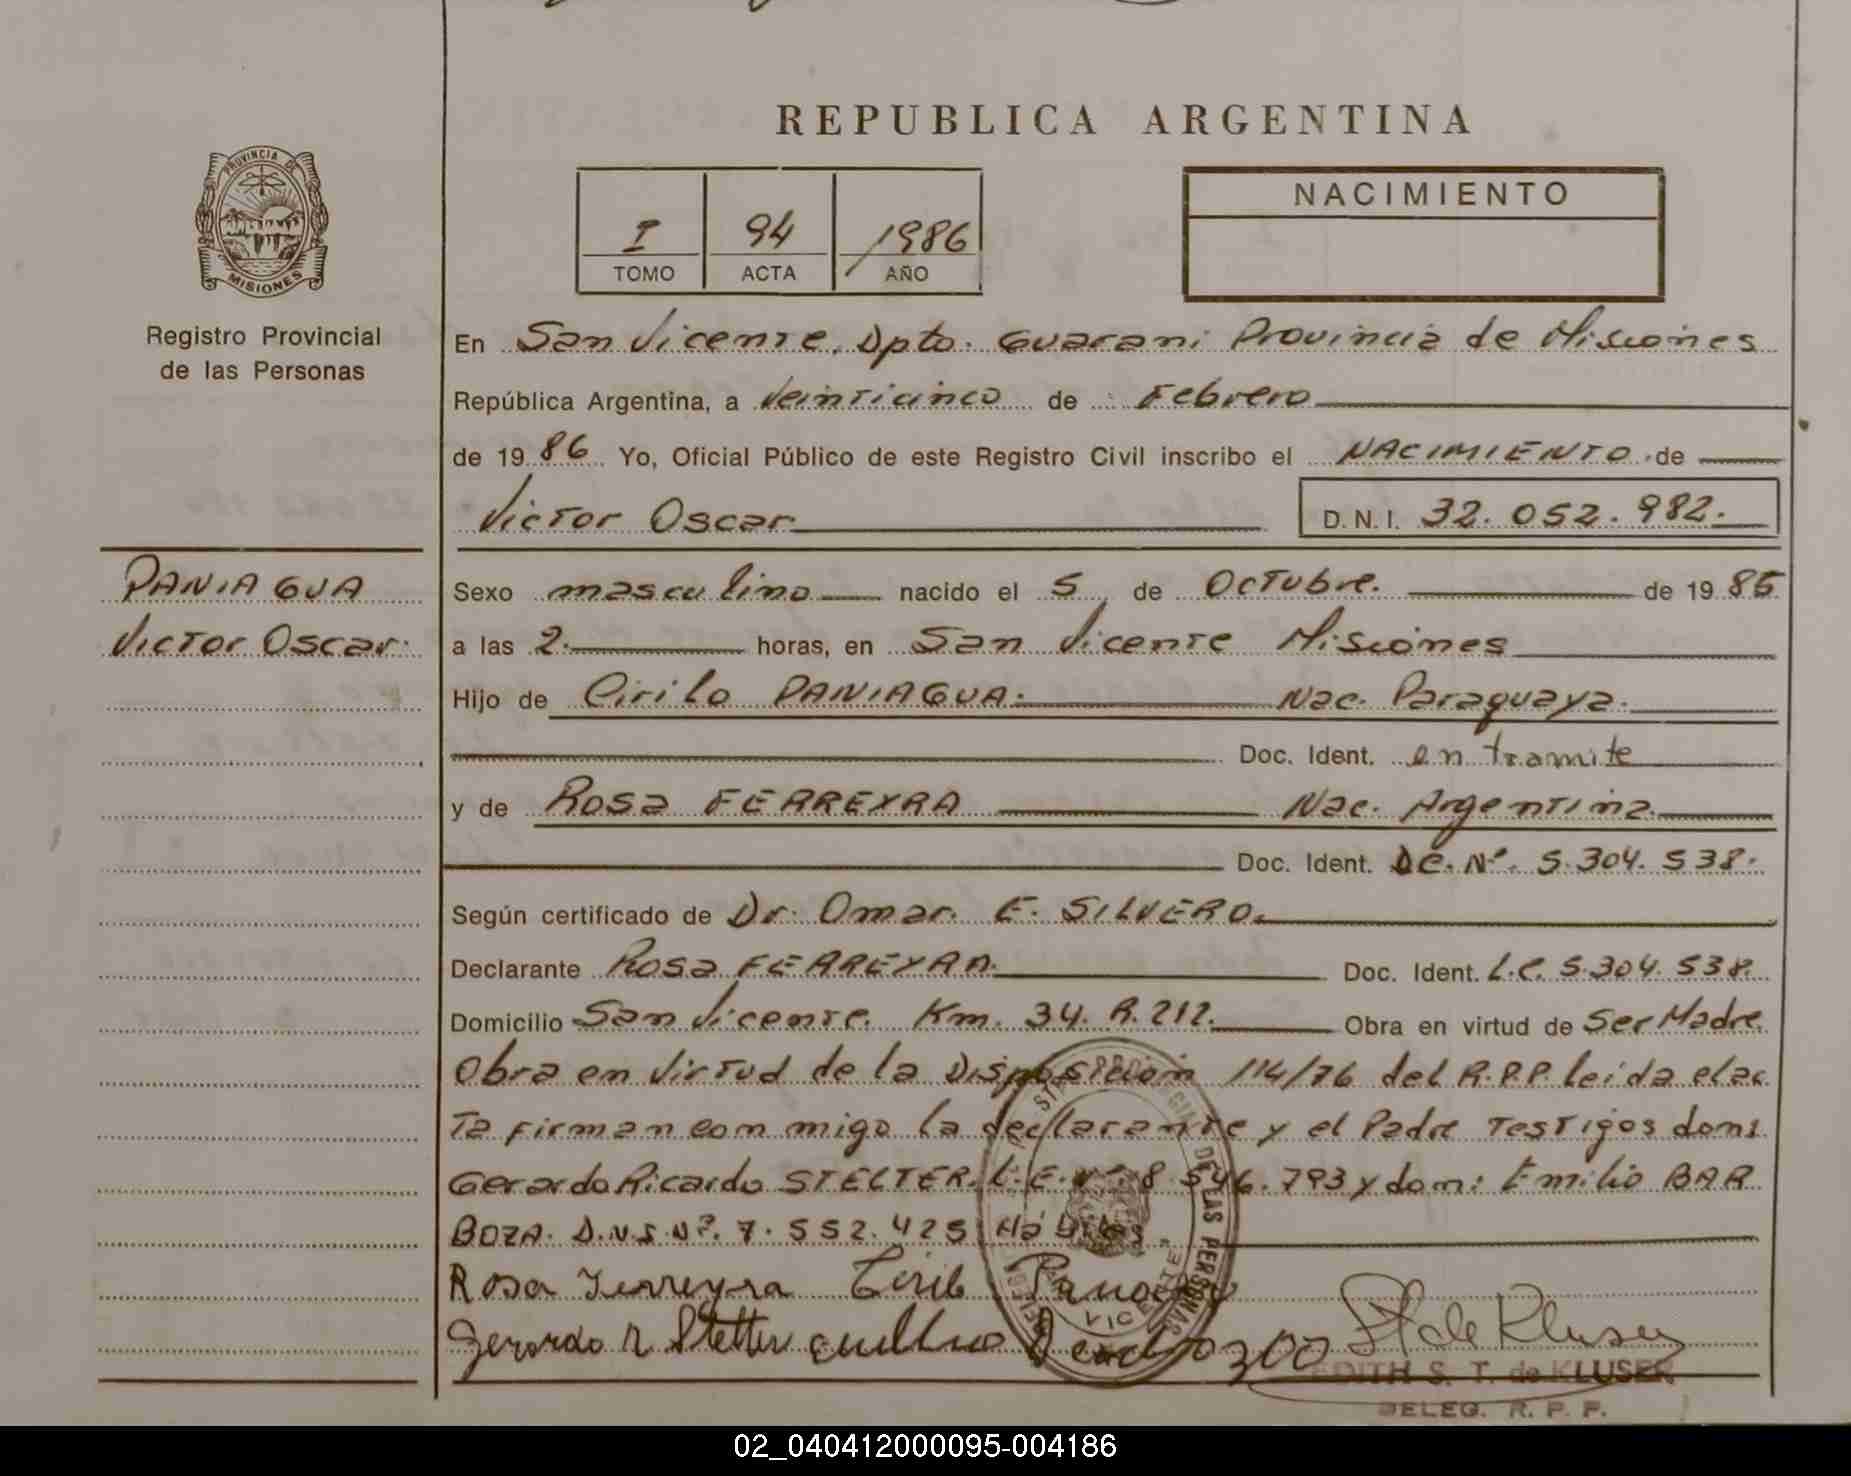 REPUBLICA ARGENTINA
PROVINCIA DE
MISIONES
Registro Provincial
de las Personas
I
TOMO
94
ACTA
1986
AÑO
NACIMIENTO
En San Vicente, Dpto. Guarani Provincia de Misiones
República Argentina, a Veinticinco de Febrero
de 19 86 Yo, Oficial Público de este Registro Civil inscribo el NACIMIENTO de
Victor Oscar
D.N.I. 32.052.982.
PANIAGUA
Victor Oscar.
Sexo masculino nacido el 5 de Octubre. de 19 85
a las 2. horas, en San Vicente Misiones
Hijo de Cirilo PANIAGUA. Nac. Paraguaya.
Doc. Ident. en tramite
y de Rosa FERREYRA Nac. Argentina.
Doc. Ident. DC. Nº. 5.304.538.
Según certificado de Dr. Omar. E. SILVERO.
Declarante Rosa FERREYRA. Doc. Ident. L.C. 5.304.538.
Domicilio San Vicente. Km. 34. R.212. Obra en virtud de Ser Madre.
Obra en Virtud de la Disposicion 114/76 del R.P.P. leída el ac
Ta firman con migo la declarante y el Padre Testigos dom:
Gerardo Ricardo STELTER. L.E. Nº. 8.546.793 y dom: Emilio BAR
BOZA. D.N.I. Nº. 7.552.425 Hábiles
Rosa Ferreyra Cirilo
Gerardo R Stelter
de Kluser
EDITH S. T. de KLUSER
DELEG. R. P. P.
02_040412000095-004186